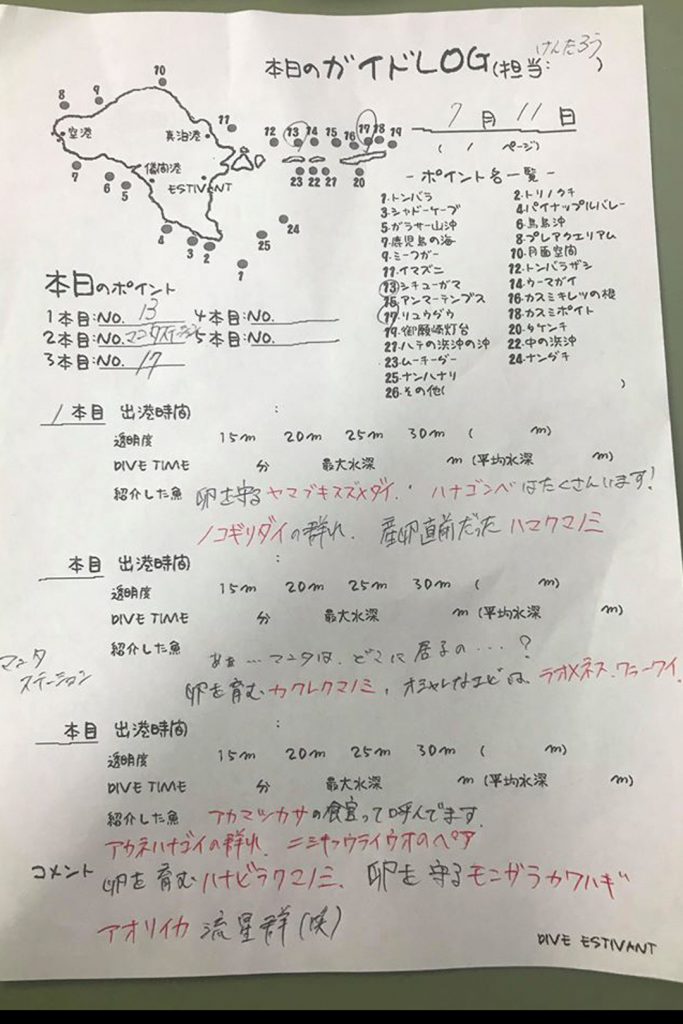 本日のガイドLOG(担当: けんたろう )
7月11日
( 1 ページ)
10
8
9
空港
真泊港
11
12
13
14
15
16
17
18
19
7
6
5
儀間港
ESTIVANT
23
22
21
20
4
3
2
25
24
1
- ポイント名一覧 -
1.トンバラ 2.トリノクチ
3.シャドーケーブ 4.パイナップルバレー
5.ガラサー山沖 6.鳥島沖
7.鹿児島の海 8.プレアクエリアム
9.ミーフガー 10.月面空間
11.イマズニ 12.トンバラザシ
13.シチューガマ 14.ウーマガイ
15.アンマーテンプス 16.カスミキレツの根
17.リュウダウ 18.カスミポイト
19.御願崎灯台 20.タケンチ
21.ハテの浜沖の沖 22.中の浜沖
23.ムーチーダー 24.ナンダチ
25.ナンハナリ
26.その他( )
本日のポイント
1本目:NO. 13 4本目:NO.
2本目:NO.マンタステーション 5本目:NO.
3本目:NO. 17
1 本目 出港時間 :
透明度 15m 20m 25m 30m ( m)
DIVE TIME 分 最大水深 m (平均水深 m)
紹介した魚 卵を守るヤマブキスズメダイ. ハナゴンベはたくさんいます!
ノコギリダイの群れ. 産卵直前だったハマクマノミ
本目 出港時間 :
透明度 15m 20m 25m 30m ( m)
DIVE TIME 分 最大水深 m (平均水深 m)
紹介した魚 あぁ…マンタは、どこに居るの・・・?
マンタ
ステーション
卵を育むカクレクマノミ, オシャレなエビは、ラオメネス.コラーワイ.
本目 出港時間 :
透明度 15m 20m 25m 30m ( m)
DIVE TIME 分 最大水深 m (平均水深 m)
紹介した魚 アカマツカサの食堂って呼んでます.
アカネハナゴイの群れ. ニシキフウライウオのペア
コメント 卵を育むハナビラクマノミ. 卵を守るモンガラカワハギ
アオリイカ 流星群(笑)
DIVE ESTIVANT